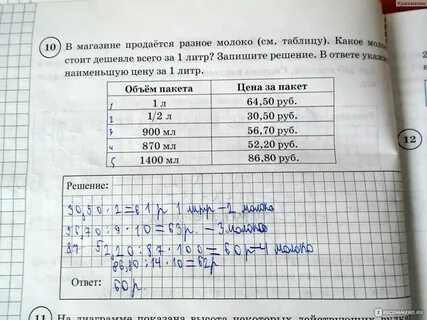 Кризмалия
10 В магазине продаётся разное молоко (см. таблицу). Какое моло
стоит дешевле всего за 1 литр? Запишите решение. В ответе укажи
наименьшую цену за 1 литр.
Объём пакета Цена за пакет
1 1 л 64,50 руб.
2 1/2 л 30,50 руб.
3 900 мл 56,70 руб.
4 870 мл 52,20 руб.
5 1400 мл 86,80 руб.
12
Решение:
30,50 · 2 = 61 р 1 литр – 2 молоко
56,70 : 9 · 10 = 63 р. – 3 молоко
52,20 : 87 · 100 = 60 р – 4 молоко
86,80 : 14 · 10 = 62 р
Ответ: 60 р.
11 На диаграмме показана высота некоторых действующих вулк
RECOMMEND.RU